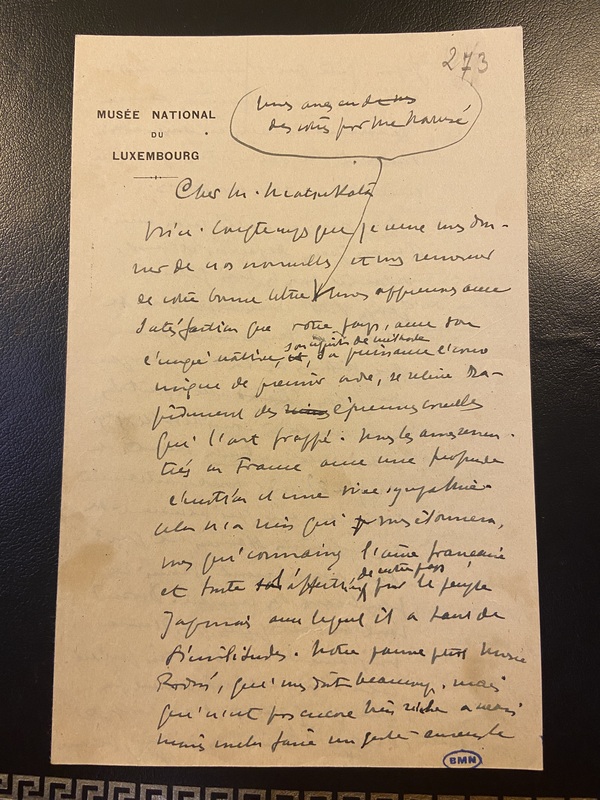 273
MUSÉE NATIONAL
DU
LUXEMBOURG
nous avons eu de vos
des vôtres par Mr
Cher M. Matsukata
longtemps que je veux vous don-
ner de nos nouvelles et vous remercier
de votre bonne lettre. Nous apprenons avec
satisfaction que votre pays, avec son
son esprit de méthode
énergie native, et, sa puissance écono
mique de premier ordre, se relève ra-
pidement des épreuves cruelles
qui l'ont frappé. Nous les avons ressen-
ties en France avec une profonde
émotion et une vive sympathie.
Cela n'a rien qui vous étonnera,
vous qui connaissez l'âme française
de notre pays
et toute l'affection pour le peuple
Japonais avec lequel il a tant de
similitudes. Notre pauvre petit Musée
Rodin, qui vous doit beaucoup, mais
qui n'est pas encore très riche a
voulu faire un geste
BMN